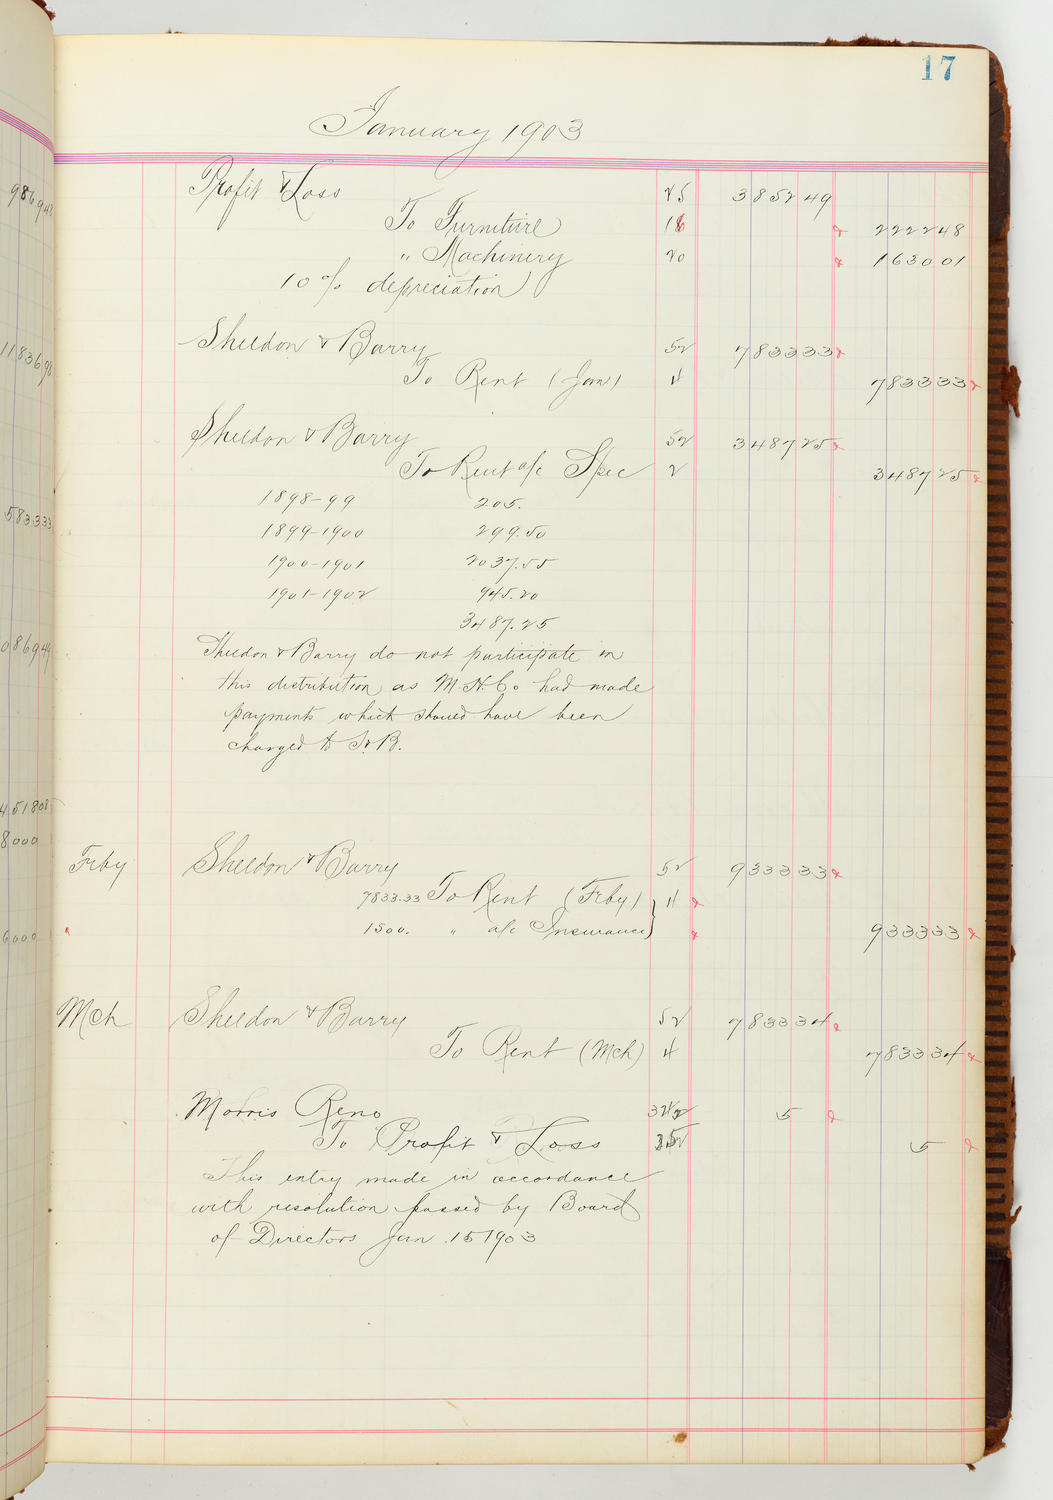 17
January 1903
Profit & Loss 25 3852 49
To Furniture 18 2222 48
" Machinery 20 1630 01
10% depreciation
Sheldon & Barry 52 7833 33
To Rent (Jan) 11 7833 33
Sheldon & Barry 52 3487 25
To Rent a/c Spec 2 3487 25
1898-99 205.
1899-1900 299.50
1900-1901 2037.55
1901-1902 945.20
3487.25
Sheldon & Barry do not participate in
this distribution as M.H. Co had made
payments which should have been
charged to S & B.
Feby Sheldon & Barry 52 9333 33
7833.33 To Rent (Feby) 11
1500. " a/c Insurance 9333 33
Mch Sheldon & Barry 52 7833 34
To Rent (Mch) 11 7833 34
Morris Reno 5
To Profit & Loss 5
This entry made in accordance
with resolution passed by Board
of Directors Jan. 15 1903
986 948
11836 98
5833 33
0869 44
4518 08
80 00
60 00